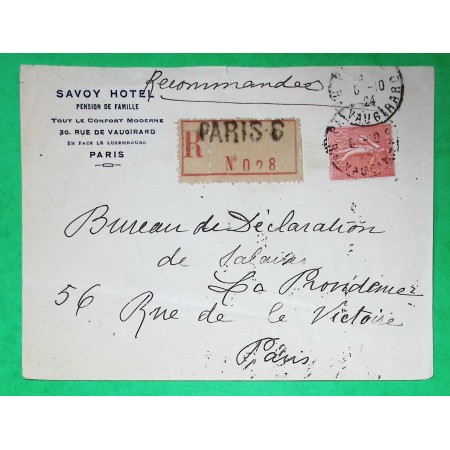 SAVOY HOTEL
PENSION DE FAMILLE
TOUT LE CONFORT MODERNE
30, RUE DE VAUGIRARD
EN FACE LE LUXEMBOURG
PARIS
Recommandée
R
PARIS 6
N° 028
6-10
24
VAUGIRARD
Bureau de Déclaration
de Salaires
La Providence
56 Rue de la Victoire
Paris